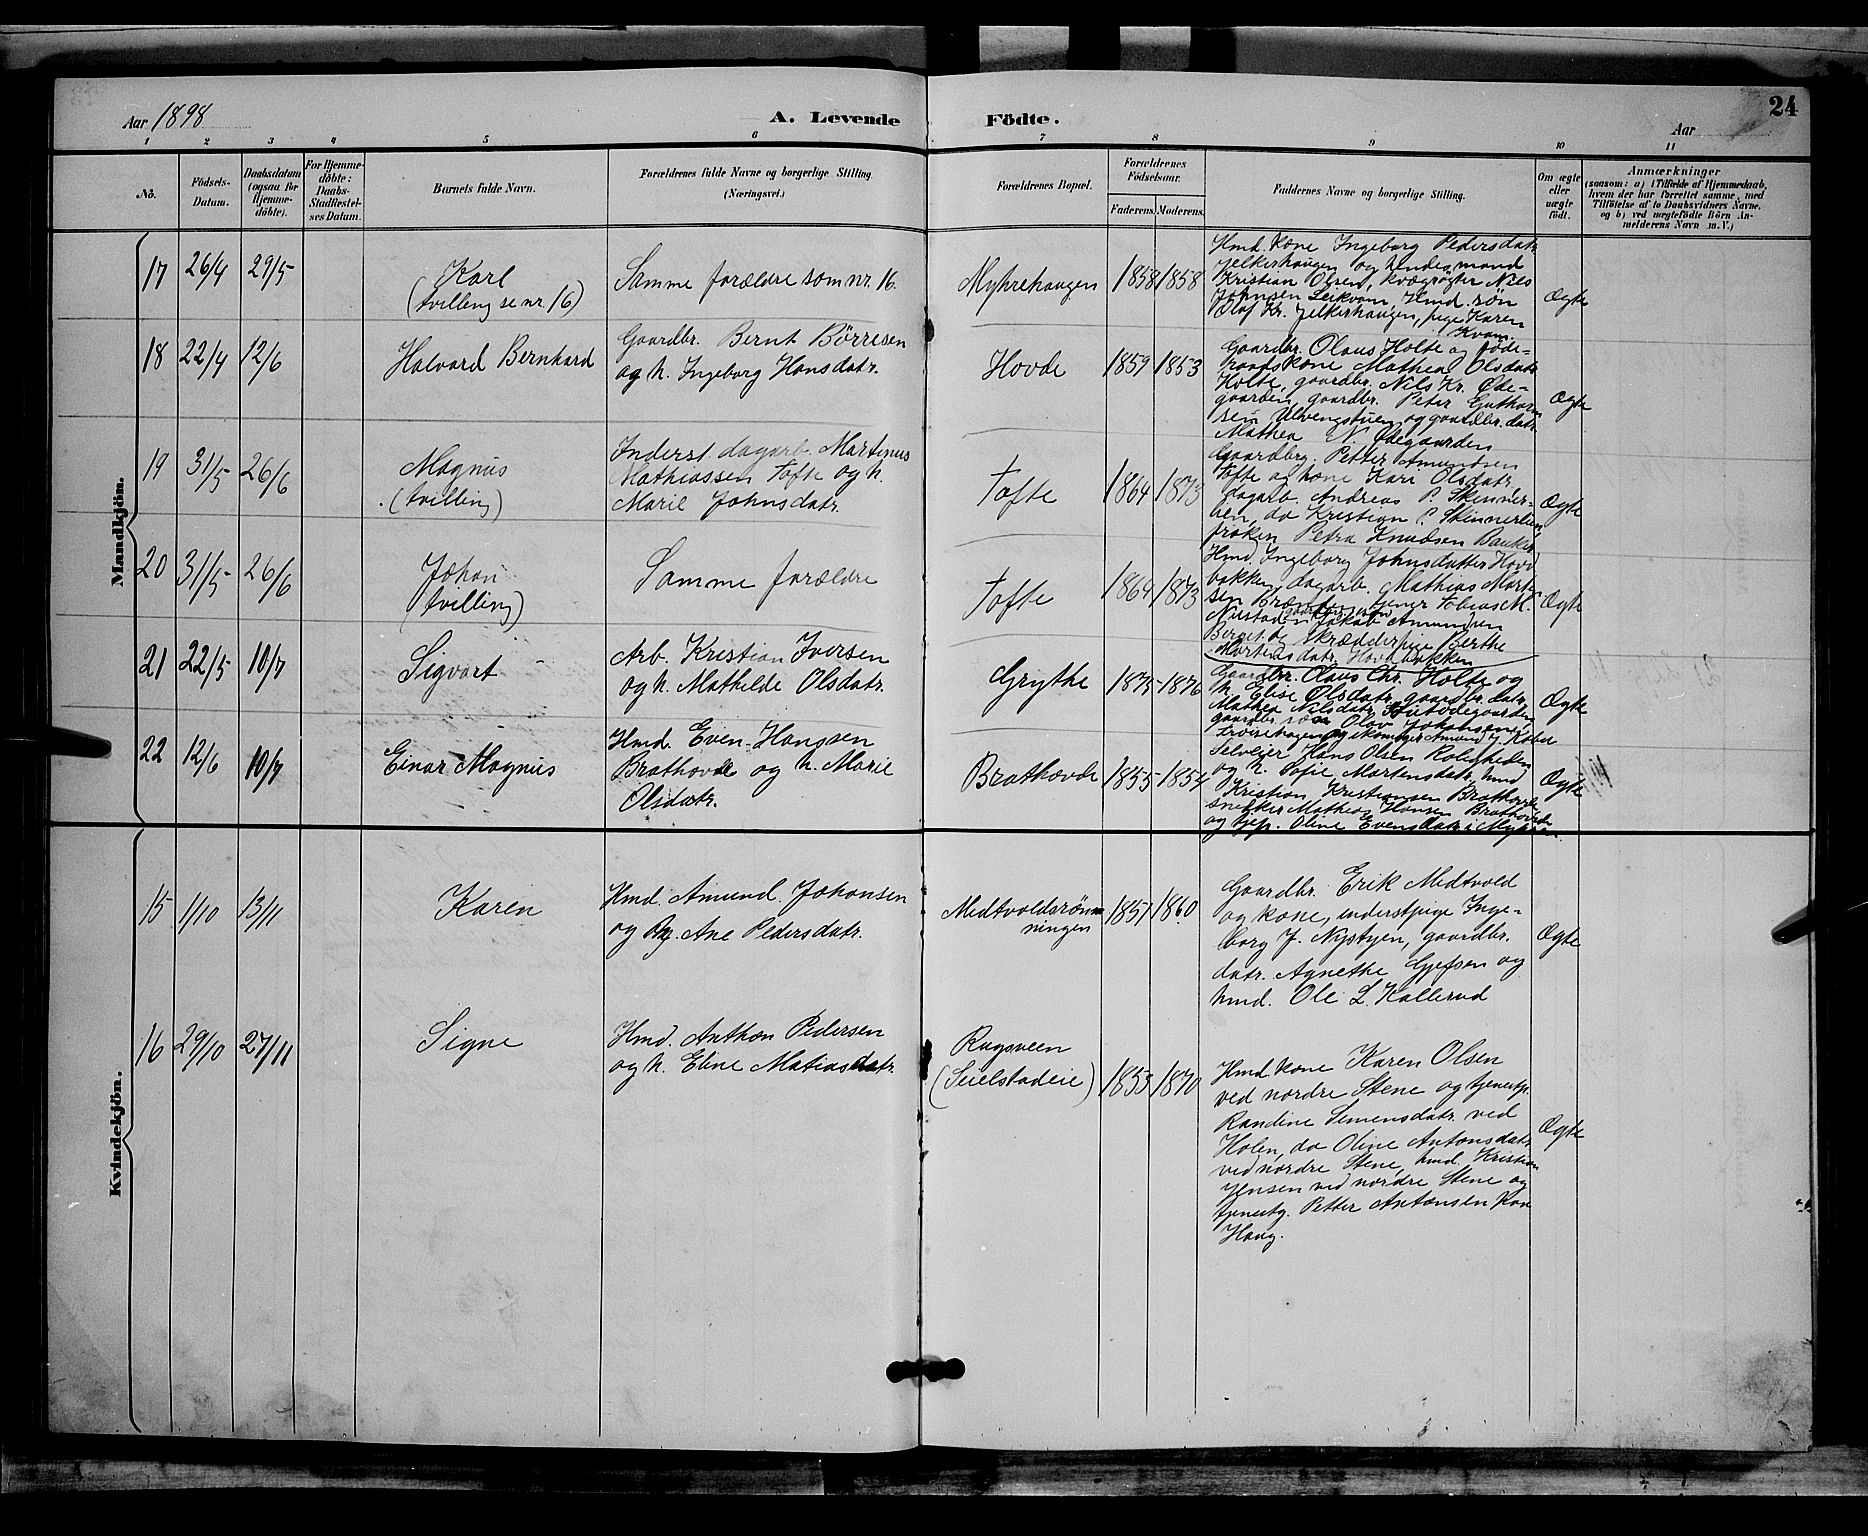 24
Aar 1898
A. Levende Födte.
Aar
1 2 3 4 5 6 7 8 9 10 11
No.
Födsels-
Datum.
Daabsdatum
(ogsaa for
Hjemme-
döbte).
For Hjemme-
döbte:
Daabs-
Stadfæstel-
ses Datum.
Barnets fulde Navn.
Forældrenes fulde Navne og borgerlige Stilling.
(Næringsvei.)
Forældrenes Bopæl.
Forældrenes
Födselsaar.
Faderens. Moderens.
Faddernes Navne og borgerlige Stilling.
Om ægte
eller
uægte
födt.
Anmærkninger
(saasom: a) i Tilfælde af Hjemmedaab,
hvem der har forrettet samme, med
Tilföielse af to Daabsvidners Navne,
og b) ved uægtefödte Börn An-
melderens Navn m. V.)
Mandkjön.
17 26/4 29/5
Karl
(tvilling se nr. 16)
Samme forældre som nr. 16.
Myhrehaugen
1858 1858
Hmd. kone Ingeborg Pedersdatr.
Jelkerhaugen og hendes mand
Kristian Olsen, kvægrøgter Nils
Johnsen Leikvam, Hmd. søn
Olaf Kr. Jelkerhaugen, pige Karen
Kvam
Ægte
18 22/4 12/6
Halvard Bernhard
Gaardbr. Bernt Börresen
og h. Ingeborg Hansdatr.
Hovde
1859 1853
Gaardbr. Olaus Holte og føde-
raadskone Mathea Olsdatr.
Holte, gaardbr. Nils Kr. Øde-
gaarden, gaardbr. Peter Guthorm
sen Ulvengstuen og gaardbr. datr.
Mathea N. Ødegaarden
Ægte
19 31/5 26/6
Magnus
(tvilling)
Inderst dagarb. Martinus
Mathiassen Tofte og h.
Marie Johnsdatr.
Tofte
1864 1873
Gaardbrg. Petter Amundsen
Tofte og kone Kari Olsdatr.
dagarb. Andreas P. Skinner-
lien, do Kristian P. Skinnerlien,
frøken Petra Knudsen
Ægte
20 31/5 26/6
Johan
(tvilling)
Samme forældre
Tofte
1864 1873
Hmd. Ingeborg Johnsdatter Hovd
bakken, dagarb. Mathias Mort-
sen tjener Tobias M.
Jakob Amundsen
Berget og skrædderpige Berthe
Mortensdatr. Hovdbakken
Ægte
21 22/5 10/7
Sigvart
Arb. Kristian Iversen
og h. Mathilde Olsdatr.
Grythe
1875 1876
Gaardbr. Olaus Chr. Holte og
h. Elise Olsdatr. gaardbr. datr.
Mathea Nilsdatr. Ødegaarden
gaardbr. søn Olav Johansen
og skomager Amund J.
Ægte
22 12/6 10/7
Einar Magnus
Hmd. Even Hanssen
Brathovde og h. Marie
Olsdatr.
Brathovde
1855 1854
Selveier Hans Olsen Roligheden
og h. Sofie Mortensdatr, hmd
Kristian Kristiansen Brathovde
snekker Mathias Hansen Brathovde
og tjep. Oline Evensdatr.
Ægte
Kvindekjön.
15 1/10 13/11
Karen
Hmd. Amund Johansen
og h. Ane Pedersdatr.
Medtvoldsrøn-
ningen
1851 1860
Gaardbr. Erik Medtvold
og kone, inderstpige Inge-
borg J. Nystyen, gaardbr.
datr. Agnethe Gjefsen og
hmd. Ole L. Kallerud
Ægte
16 29/10 27/11
Signe
Hmd. Anthon Pedersen
og h. Eline Matiasdatr.
Rugsveen
(Seielstadeie)
1853 1870
Hmd. kone Karen Olsen
ved nordre Stene og tjenestp.
Randine Simensdatr. ved
Holen, do Oline Antonsdatr.
ved nordre Stene, hmd. Kristian
Jensen ved nordre Stene og
tjenestg. Petter Antonsen
Haug.
Ægte